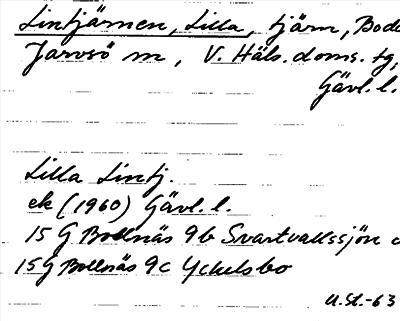 Lintjärnen, Lilla, tjärn, Bodå
Järvsö sn, V. Häls. doms. tg,
Gävl. l.
Lilla Lintj.
ek (1960) Gävl. l.
15 G Bollnäs 9b Svartvallssjön
15 G Bollnäs 9c Yckelsbo
U.St.-63